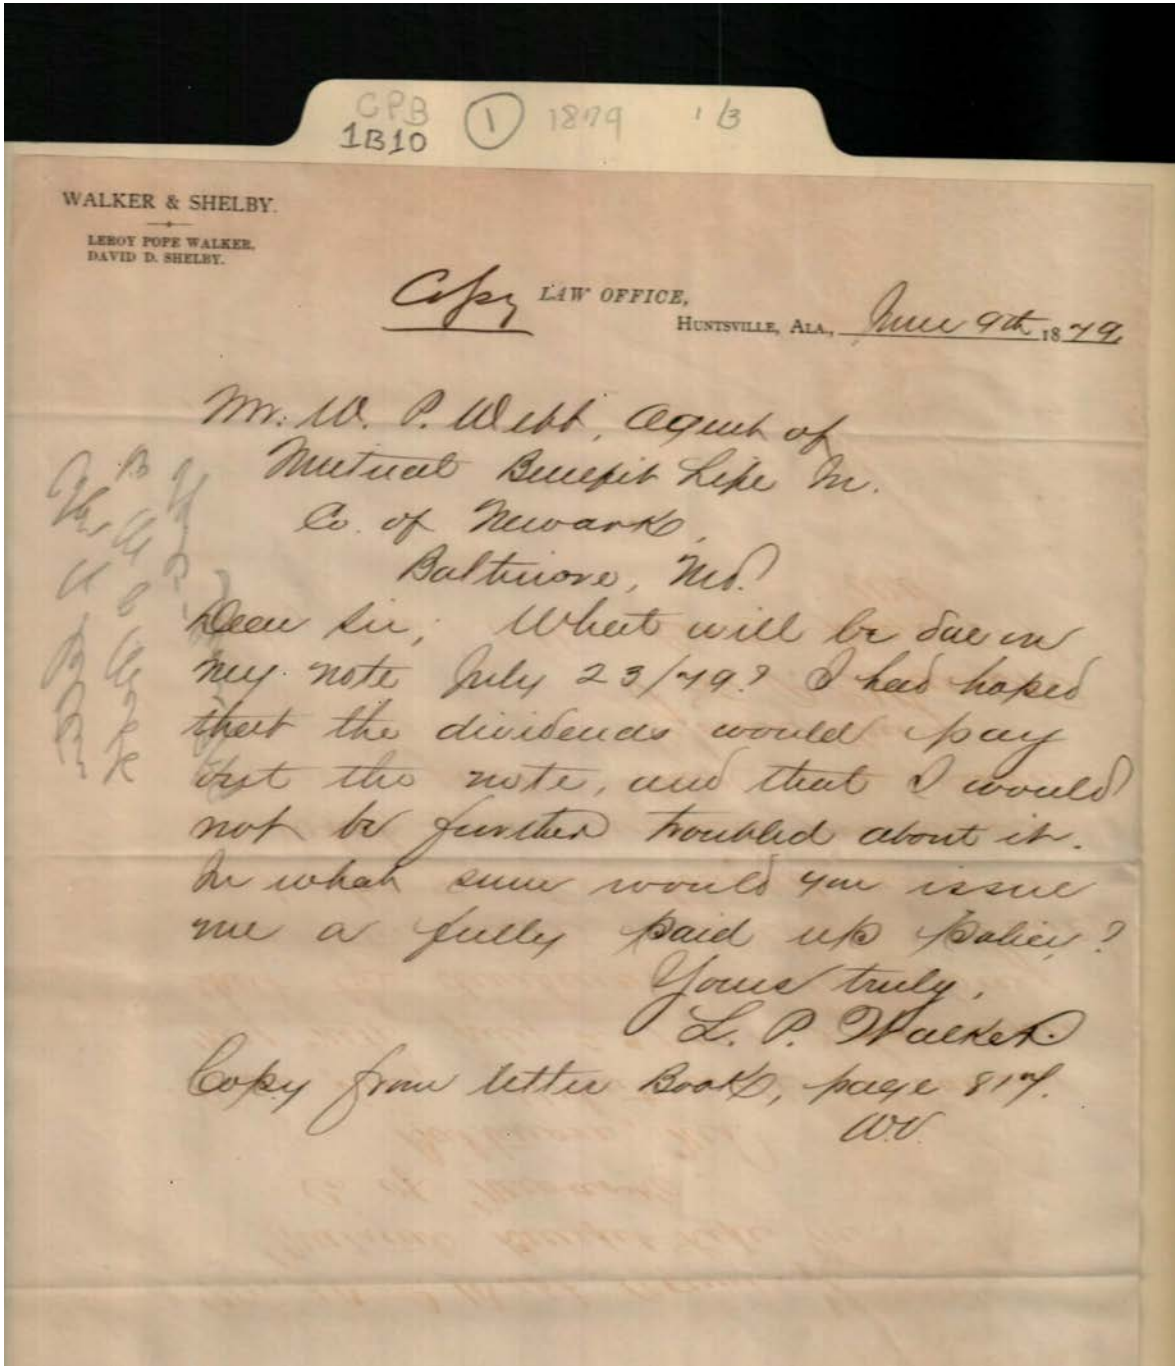 CPB 1 1879 1/3
1B10
WALKER & SHELBY.
LEROY POPE WALKER,
DAVID D. SHELBY.
Copy LAW OFFICE,
HUNTSVILLE, ALA., June 9th 1879.
Mr. W. P. Webb, Agent of
Mutual Benefit Life In.
Co. of Newark,
Baltimore, Md.
Dear Sir; What will be due on
my note July 23/79? I had hoped
that the dividends would pay
out the note, and that I would
not be further troubled about it.
In what sum would you issue
me a fully paid up policy?
Yours truly,
L. P. Walker.
Copy from letter Book, page 817.